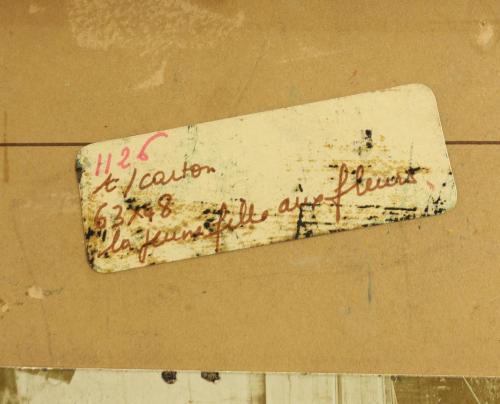 1126
t/carton
63x48
la jeune fille aux fleurs